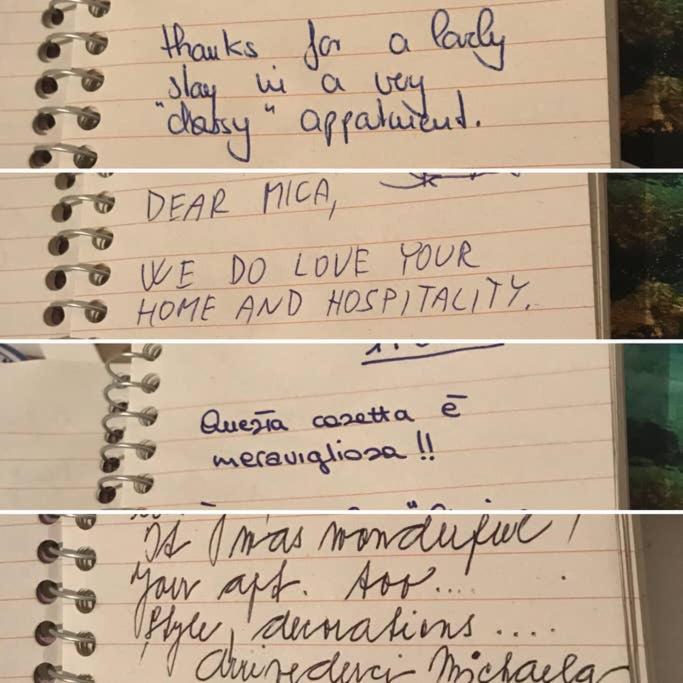 thanks for a lovely
stay in a very
"classy" appatuient.
DEAR MICA,
WE DO LOVE YOUR
HOME AND HOSPITALITY.
Questa casetta è
meravigliosa !!
It was wonderful !
Your apt. too....
Style, decorations ....
Arrivederci Michaela